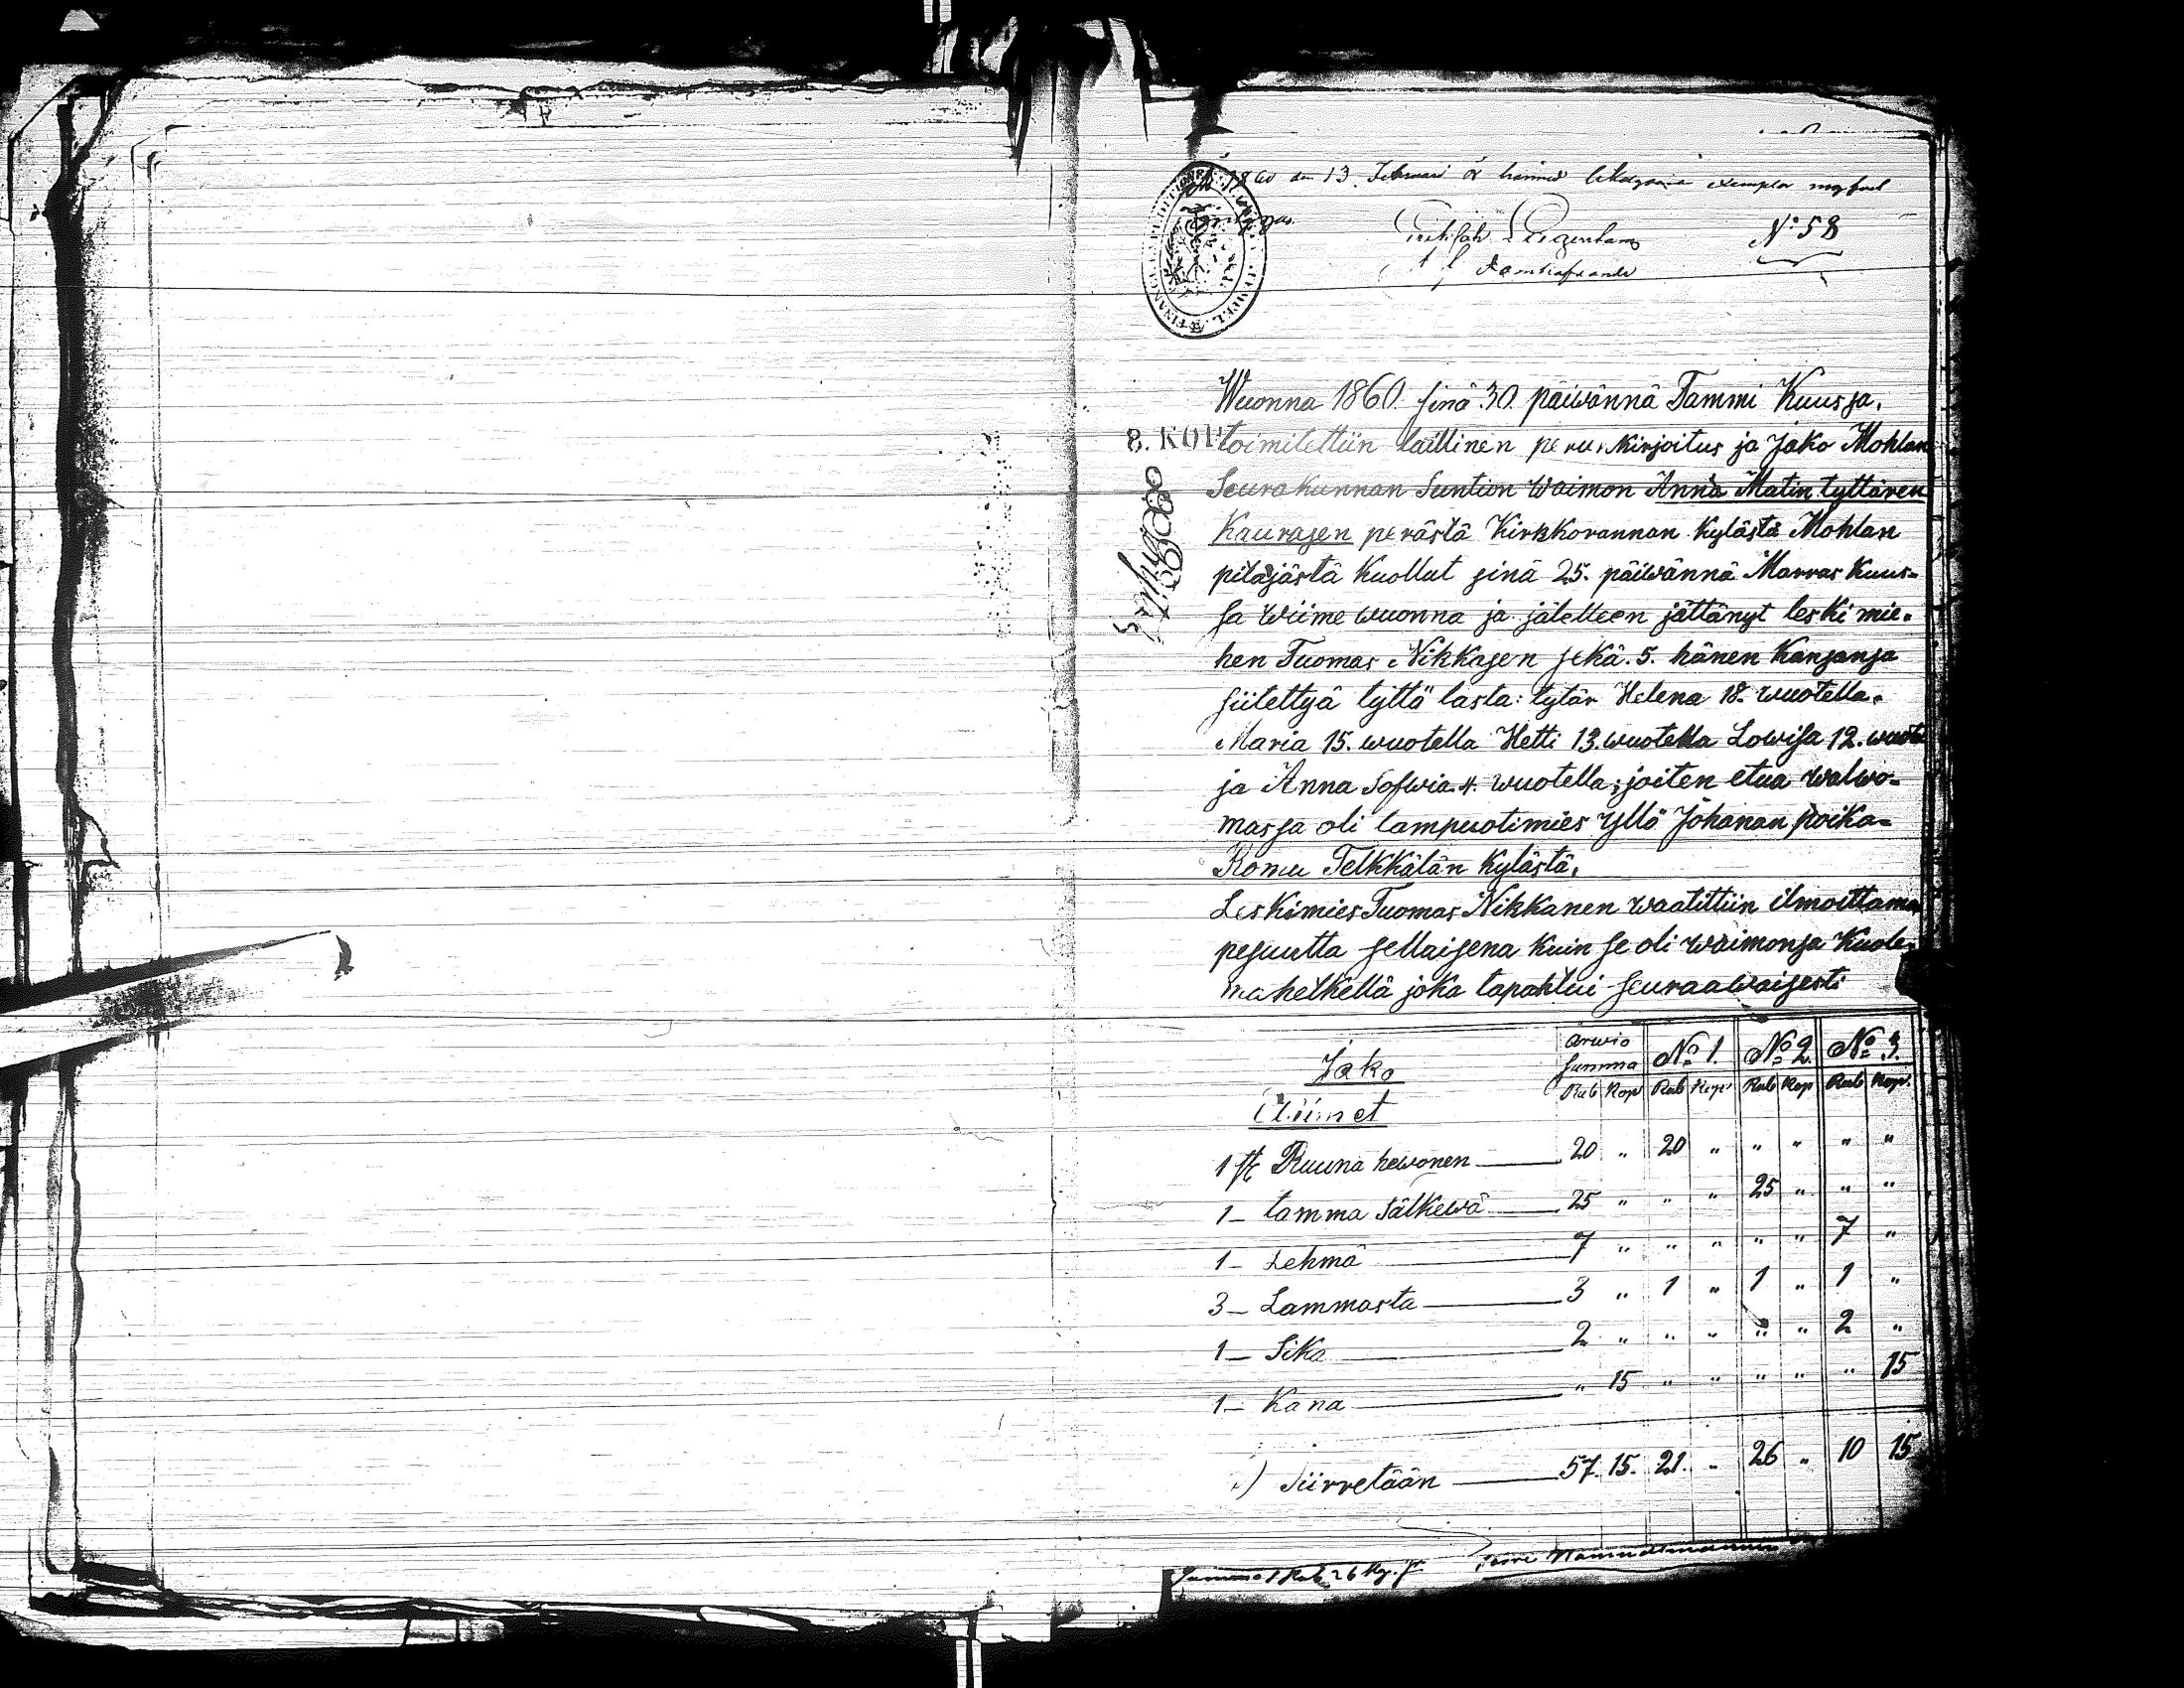 1860 den 13. Februari
N:o 58
Wuonna 1860. sinä 30. päiwännä Tammi Kuussa,
8. KOP
toimitettiin laillinen perus Kirjoitus ja Jako Mohlan
Seurakunnan Suntion waimon Anna Matin tyttären
Kaurasen perästä Kirkkorannan Kylästä Mohlan
pitäjästä Kuollut sinä 25. päiwännä Marras Kuus-
sa wiime wuonna ja jälelleen jättänyt leski mie-
hen Tuomas Nikkasen sekä 5. hänen Kansansa
siitettyä tyttö lasta: tytär Helena 18. wuotella.
Maria 15. wuotella Hetti 13. wuotella Lowisa 12. wuote
ja Anna Sofwia 4. wuotella; joiten etua walwo-
massa oli lampuotimies Yllö Johanan poika-
Romu Telkkälän Kylästä.
Leskimies Tuomas Nikkanen waatittiin ilmoittama
pesuutta sellaisena Kuin se oli waimonsa Kuole-
ma hetkellä joka tapahtui seuraawaisesti
Jako
Arwio Summa No 1. No 2. No 3.
Rub Kop Rub Kop Rub Kop Rub Kop.
Eläimet
1 st Ruuna hewonen 20 " 20 " " " " "
1 – tamma Sälkewä 25 " " " 25 " " "
1 – Lehmä 7 " " " " " 7 "
3 – Lammasta 3 " 1 " 1 " 1 "
1 – Sika 2 " " " " " 2 "
1 – Kana " 15 " " " " " 15
Siirretään 57. 15. 21. " 26 " 10 15
Summa 1 Rub 26 Kop. Sr